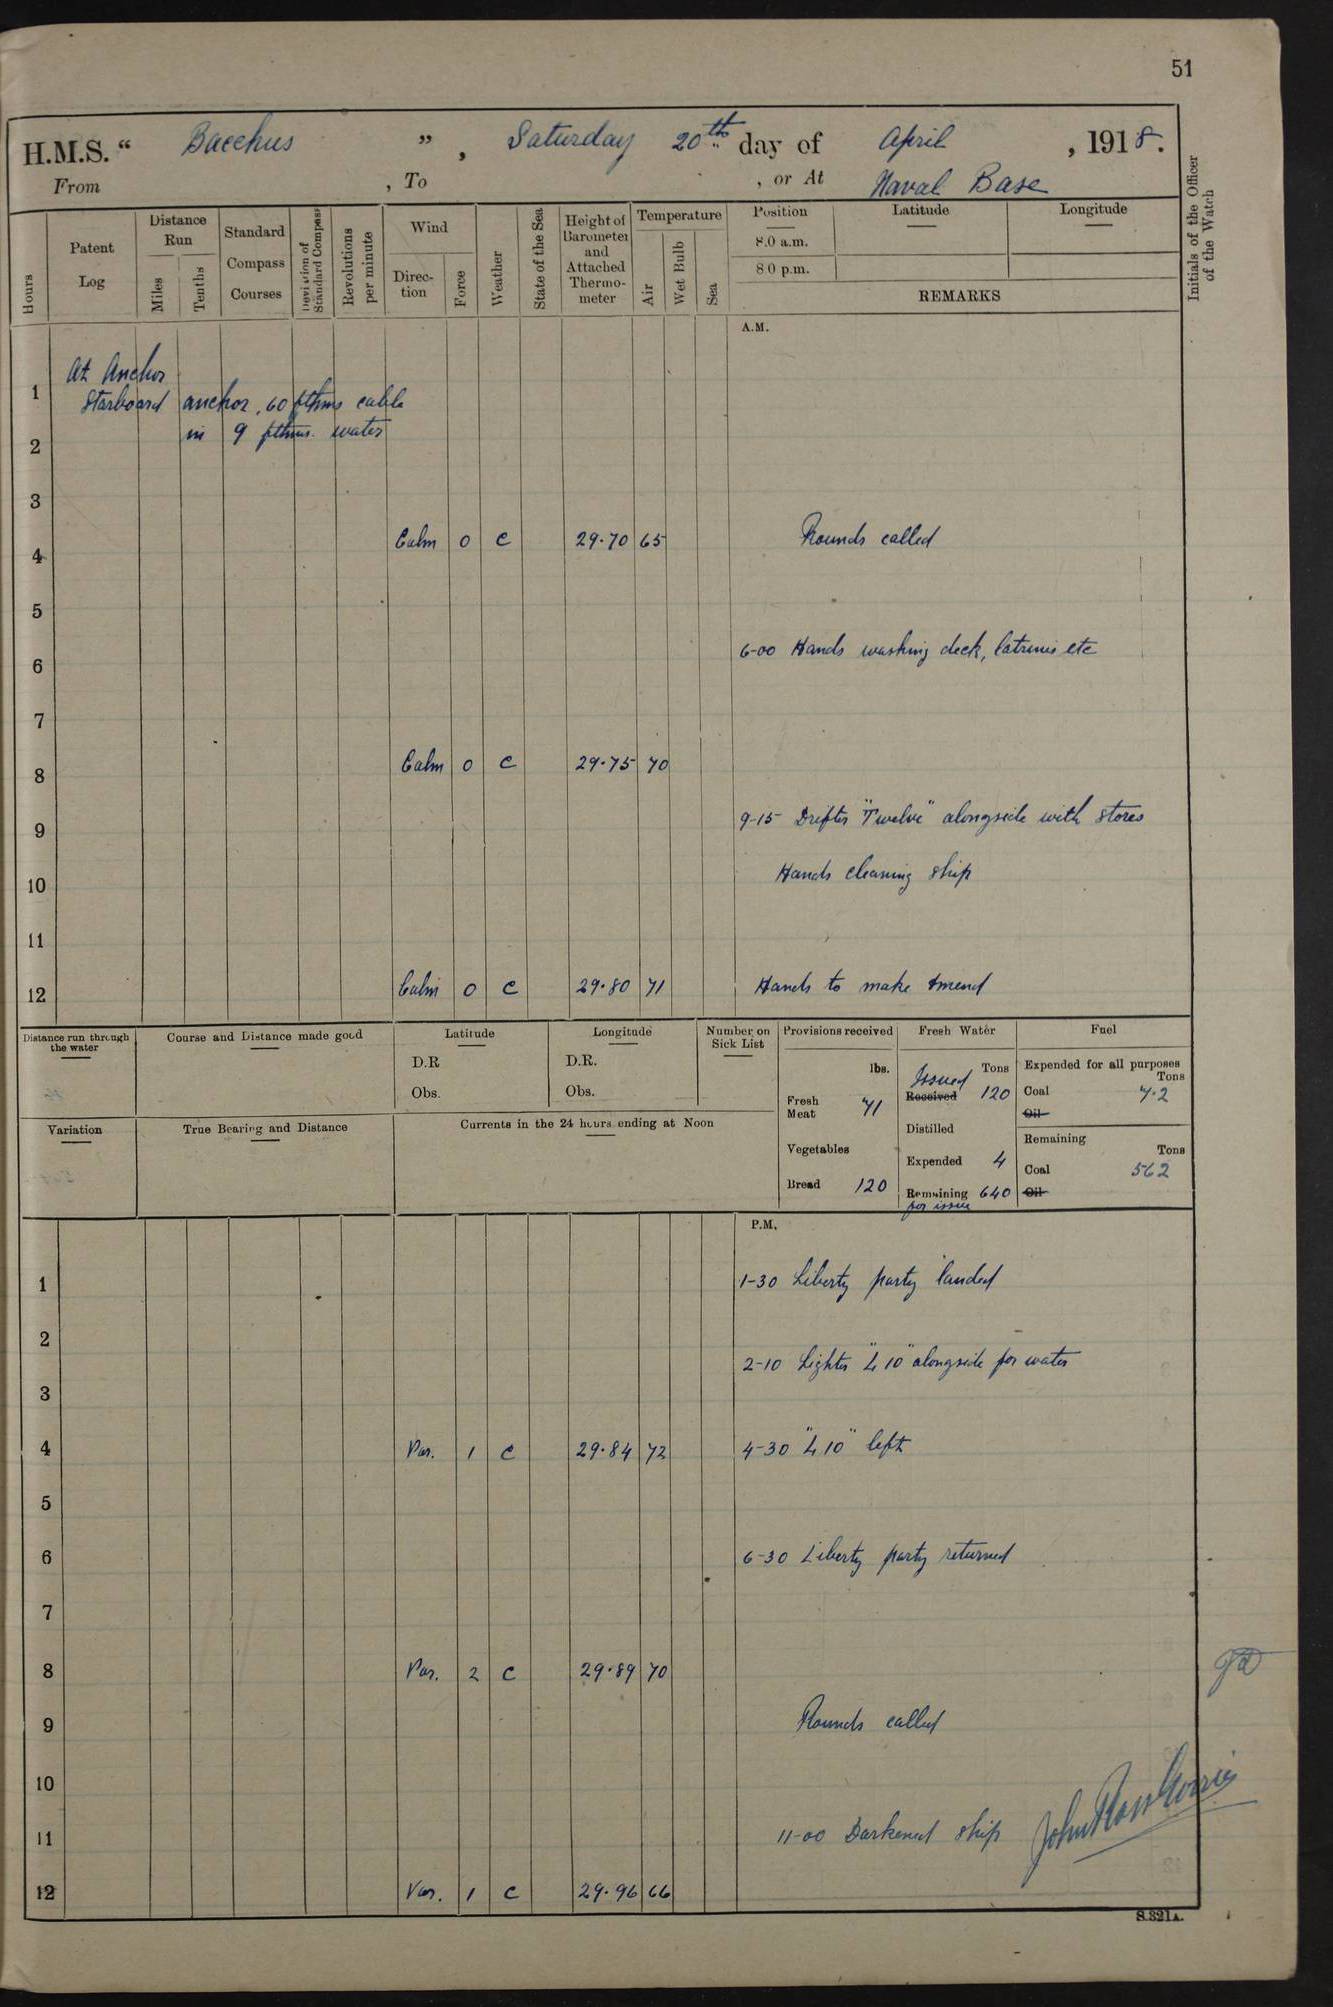 51
H.M.S. “ Bacchus ” , Saturday 20th day of April , 1918.
From , To , or At Naval Base
Hours
Patent Log
Distance Run
Miles
Tenths
Standard Compass Courses
Deviation of Standard Compass
Revolutions per minute
Wind
Direction
Force
Weather
State of the Sea
Height of Barometer and Attached Thermometer
Temperature
Air
Wet Bulb
Sea
Position
8.0 a.m.
8 0 p.m.
Latitude
Longitude
REMARKS
Initials of the Officer of the Watch
A.M.
At Anchor
1 Starboard anchor, 60 fthms cable
2 in 9 fthms. water
3
4 Calm 0 c 29.70 65 Rounds called
5
6 6-00 Hands washing deck, latrines etc
7
8 Calm 0 c 29.75 70
9 9-15 Drifter "Twelve" alongside with stores
10 Hands cleaning ship
11
12 Calm 0 c 29.80 71 Hands to make & mend
Distance run through the water
Course and Distance made good
Latitude
D.R
Obs.
Longitude
D.R.
Obs.
Number on Sick List
Provisions received
lbs.
Fresh Meat 71
Vegetables
Bread 120
Fresh Water
Tons
Issued
Received 120
Distilled
Expended 4
Remaining 640
for issue
Fuel
Expended for all purposes
Tons
Coal 7.2
Oil
Remaining
Tons
Coal 562
Oil
Variation
True Bearing and Distance
Currents in the 24 hours ending at Noon
P.M.
1 1-30 Liberty party landed
2 2-10 Lighter "L 10" alongside for water
3
4 Var. 1 c 29.84 72 4-30 "L 10" left
5
6 6-30 Liberty party returned
7
8 Var. 2 c 29.89 70
9 Rounds called
10
11 11-00 Darkened ship
12 Var. 1 c 29.96 66
S.321A.